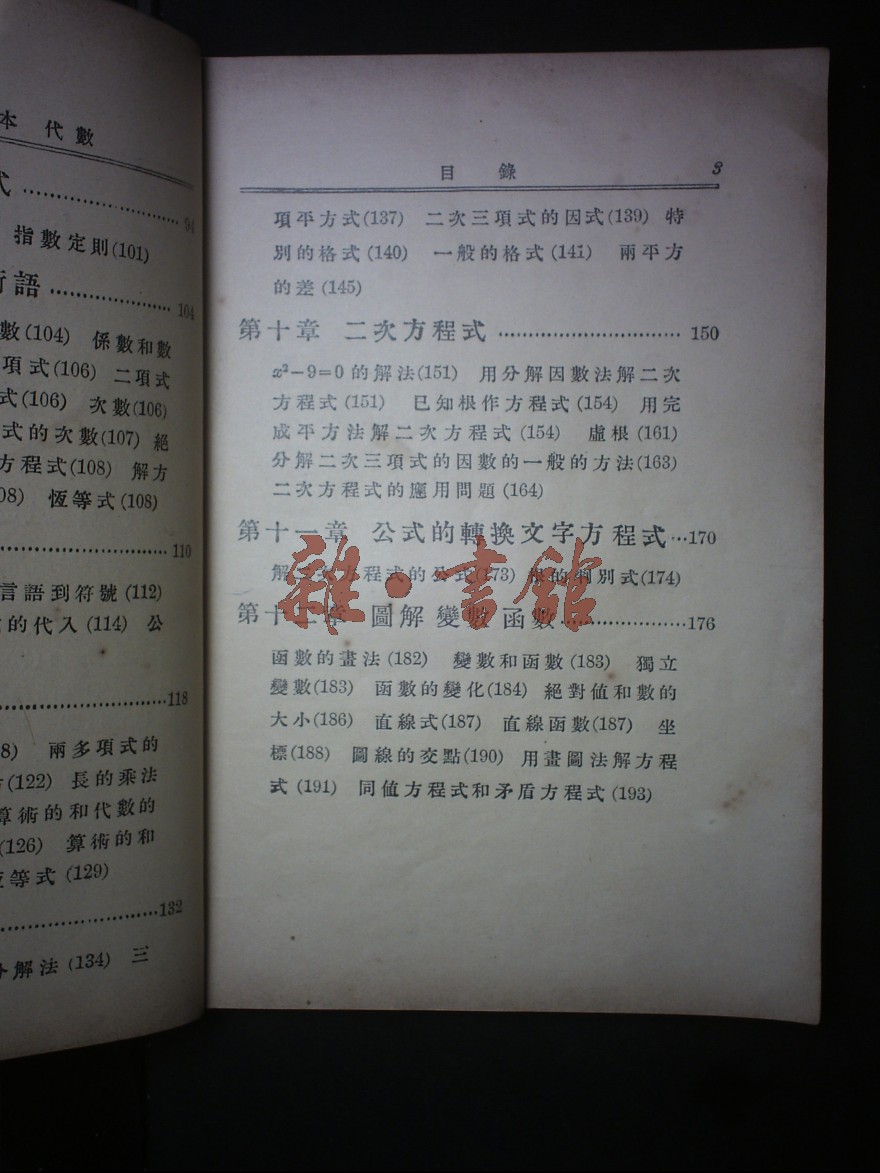 本 代數
式 94
指數定則(101)
術語 104
數(104) 係數和數
項式(106) 二項式
式(106) 次數(106)
式的次數(107) 絕
方程式(108) 解方
08) 恆等式(108)
110
言語到符號(112)
的代入(114) 公
118
8) 兩多項式的
(122) 長的乘法
算術的和代數的
(126) 算術的和
恆等式(129)
132
分解法(134) 三
目 錄 3
項平方式(137) 二次三項式的因式(139) 特
別的格式(140) 一般的格式(141) 兩平方
的差(145)
第十章 二次方程式 150
x²-9=0的解法(151) 用分解因數法解二次
方程式(151) 已知根作方程式(154) 用完
成平方法解二次方程式(154) 虛根(161)
分解二次三項式的因數的一般的方法(163)
二次方程式的應用問題(164)
第十一章 公式的轉換文字方程式 170
解二次方程式的公式(173) 根的判別式(174)
第十二章 圖解 變數 函數 176
函數的畫法(182) 變數和函數(183) 獨立
變數(183) 函數的變化(184) 絕對值和數的
大小(186) 直線式(187) 直線函數(187) 坐
標(188) 圖線的交點(190) 用畫圖法解方程
式(191) 同値方程式和矛盾方程式(193)
雜·書館